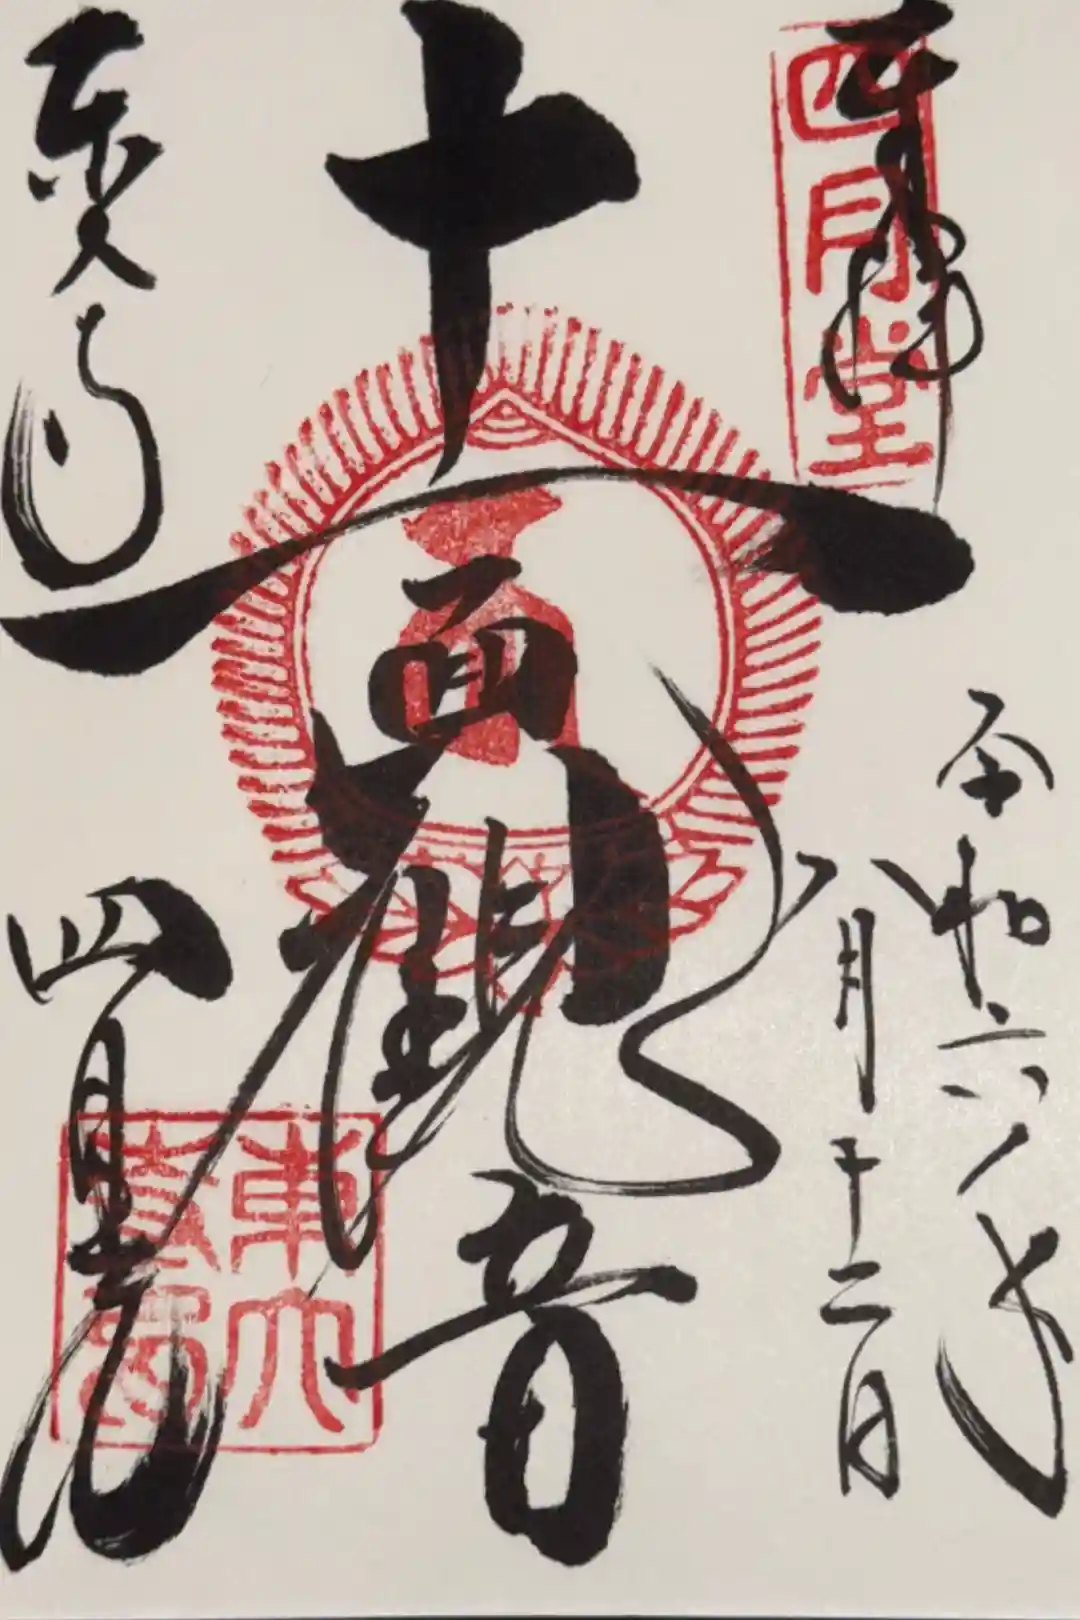 奉拝
四月堂
令和六年
八月十二日
十一面観音
東大寺
四月堂
東大